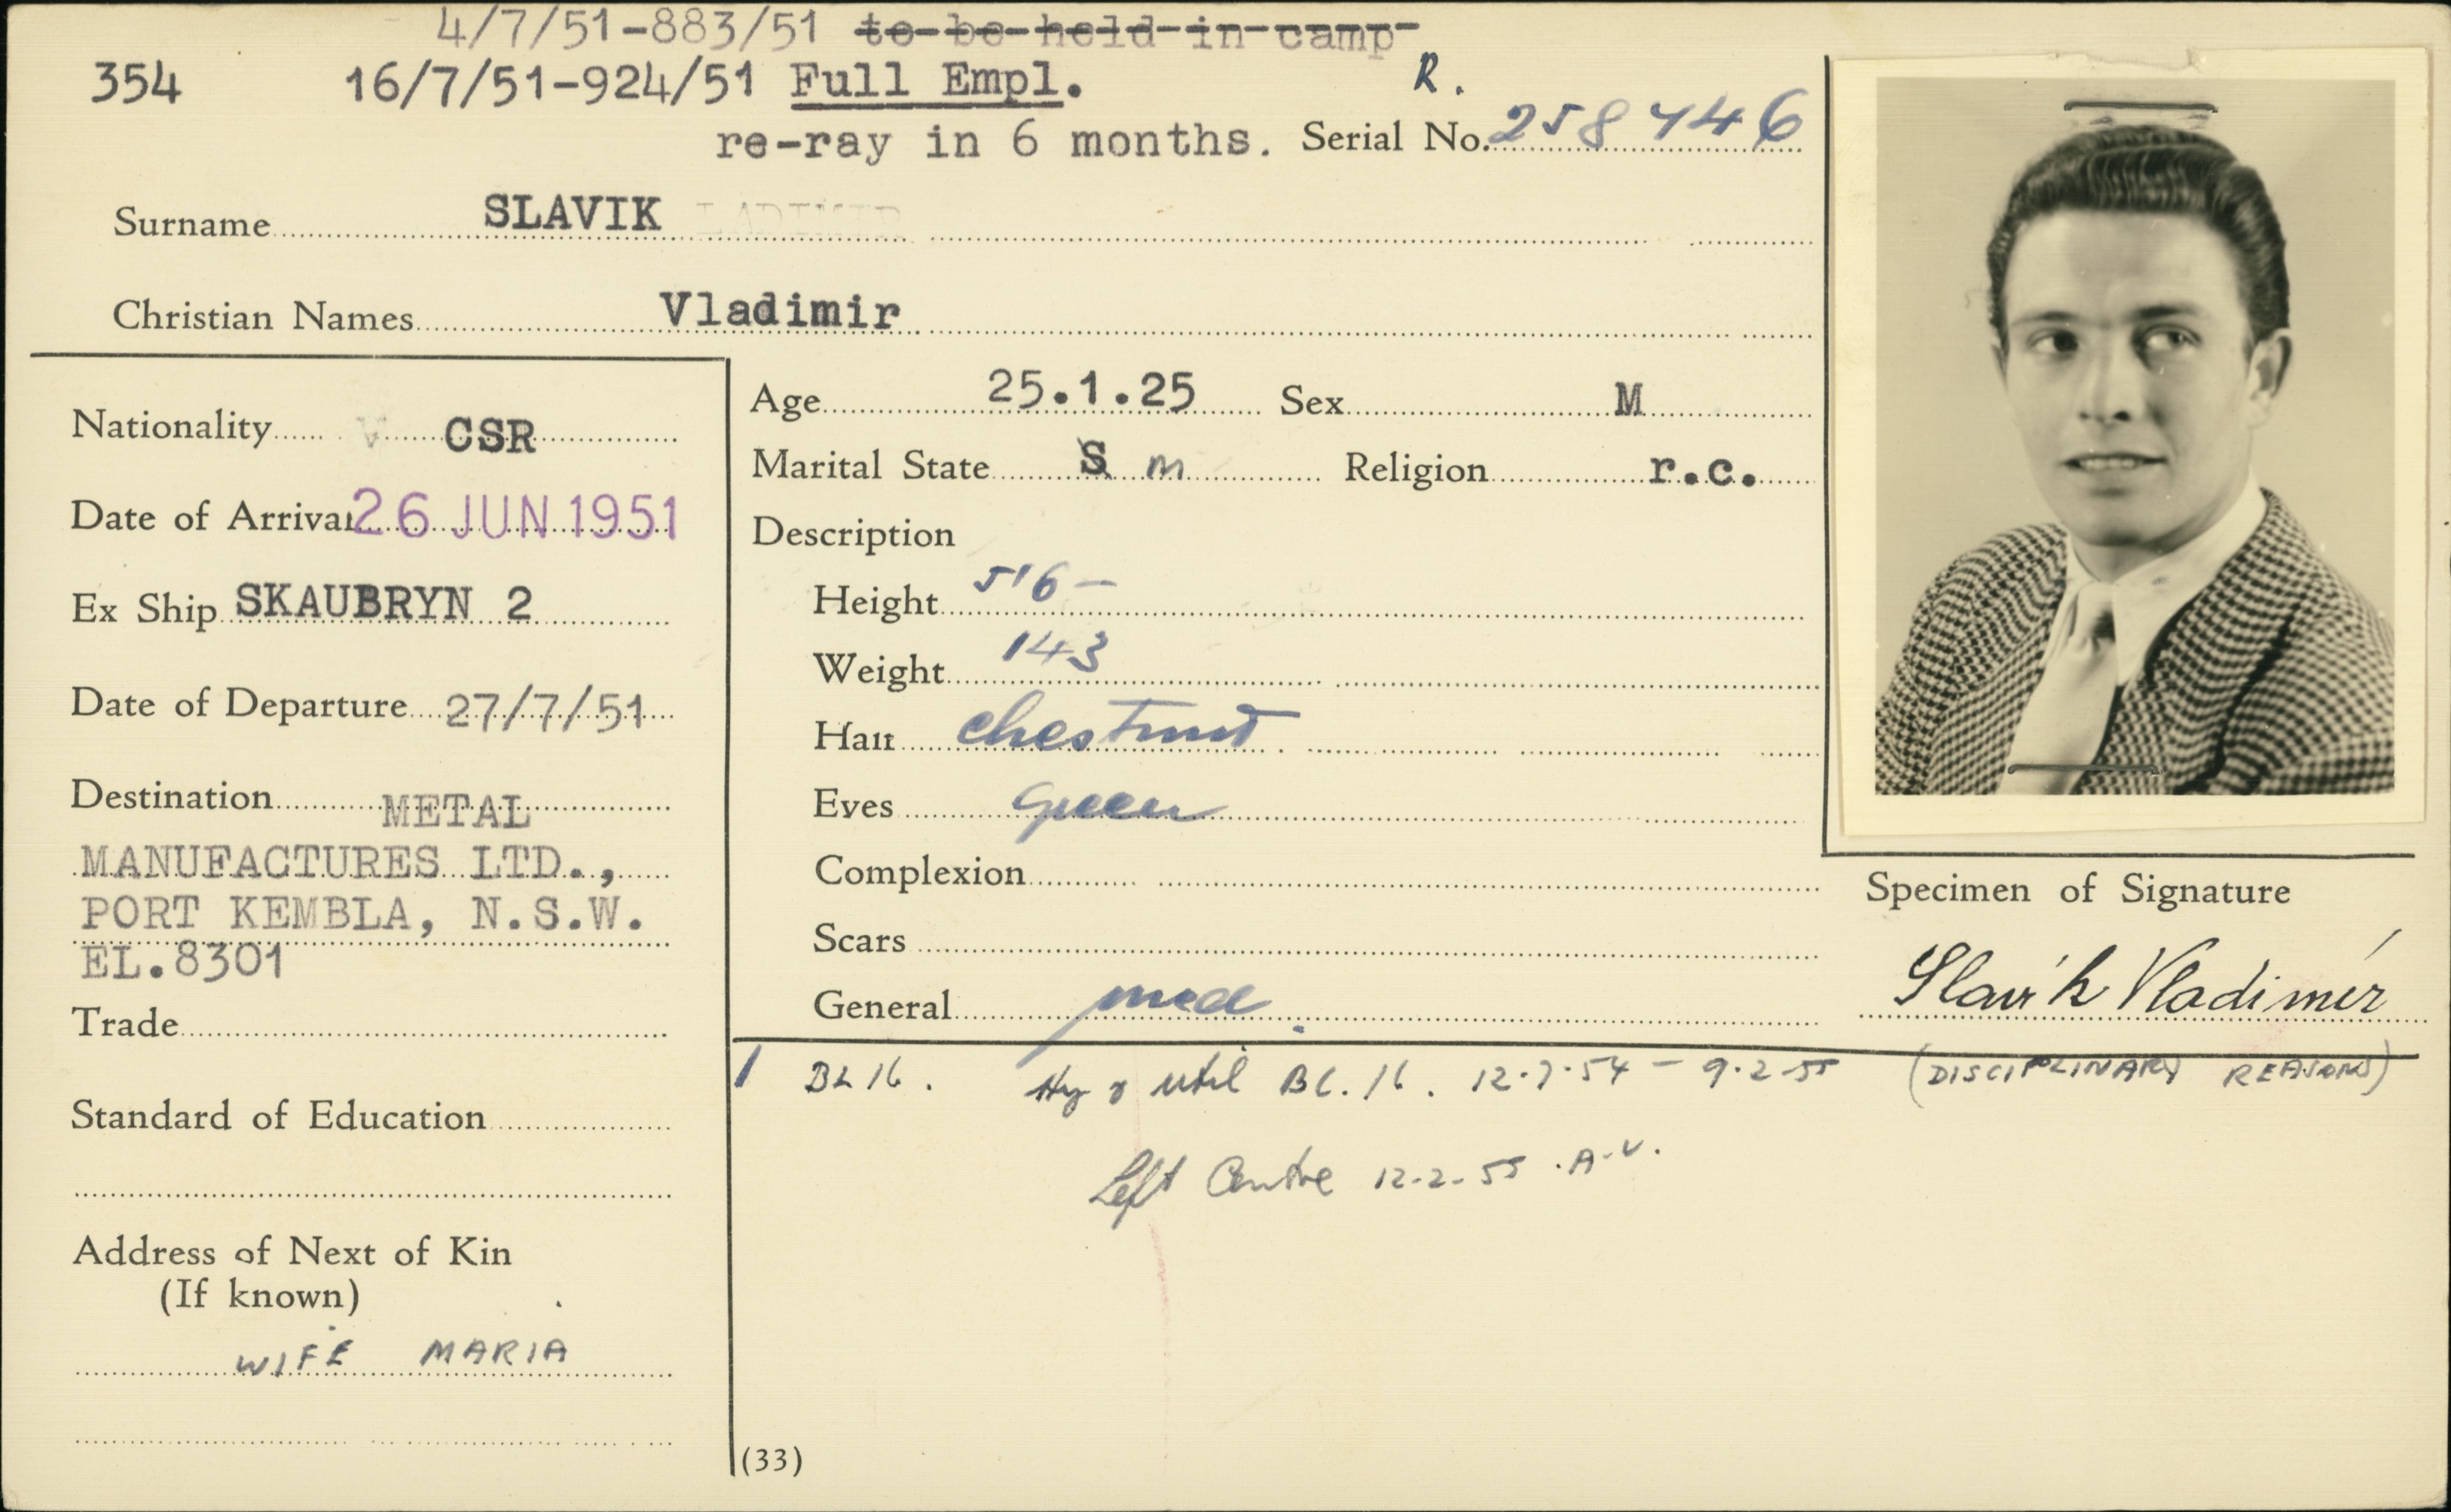 4/7/51-883/51 to be held in camp
354 16/7/51-924/51 Full Empl. R.
re-ray in 6 months. Serial No. 258746
Surname SLAVIK LADIMIR
Christian Names Vladimir
Nationality V CSR
Date of Arrival 26 JUN 1951
Ex Ship SKAUBRYN 2
Date of Departure 27/7/51
Destination METAL
MANUFACTURES LTD.,
PORT KEMBLA, N.S.W.
EL.8301
Trade
Standard of Education
Address of Next of Kin
(If known)
WIFE MARIA
Age 25.1.25 Sex M
Marital State S m Religion r.c.
Description
Height 5'6-
Weight 143
Hair chestnut
Eyes green
Complexion
Scars
General med.
Specimen of Signature
Slavík Vladimír
1 BL 16. Hy & util BL.16. 12.7.54 - 9.2.55 (DISCIPLINARY REASONS)
Left Centre 12.2.55. A.V.
(33)